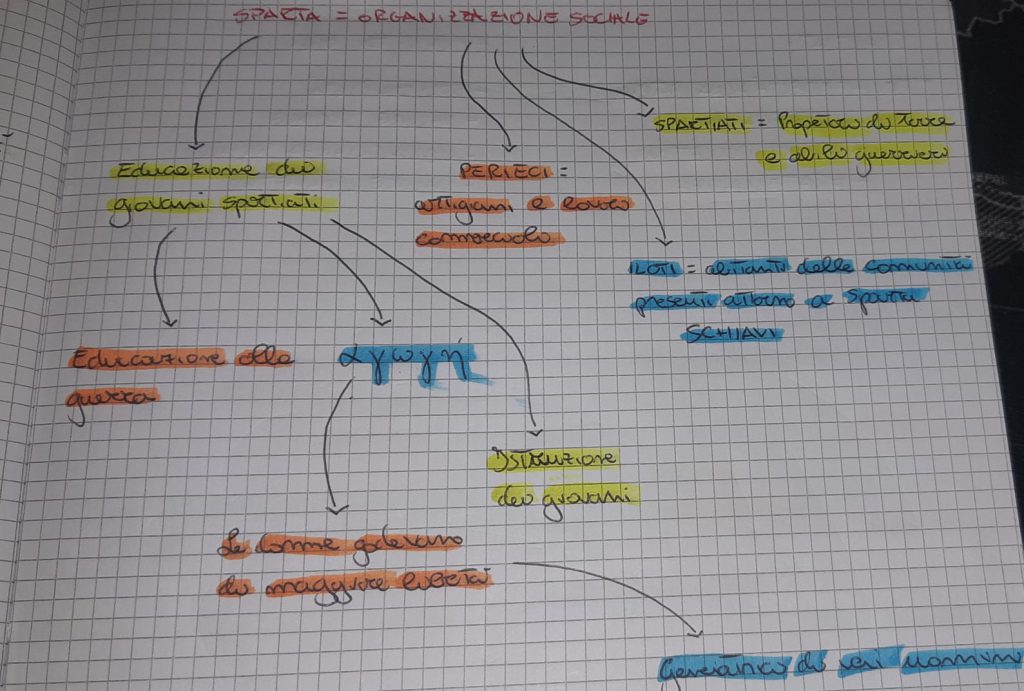 SPARTA = ORGANIZZAZIONE SOCIALE
SPARTIATI = Proprietari di terre
e abili guerrieri
Educazione dei
giovani spartiati
PERIECI =
artigiani e
ILOTI = abitanti delle comunità
presenti attorno a Sparta
SCHIAVI
Educazione alla
guerra
αγωγή
Istruzione
dei giovani
Le donne godevano
di maggiore libertà